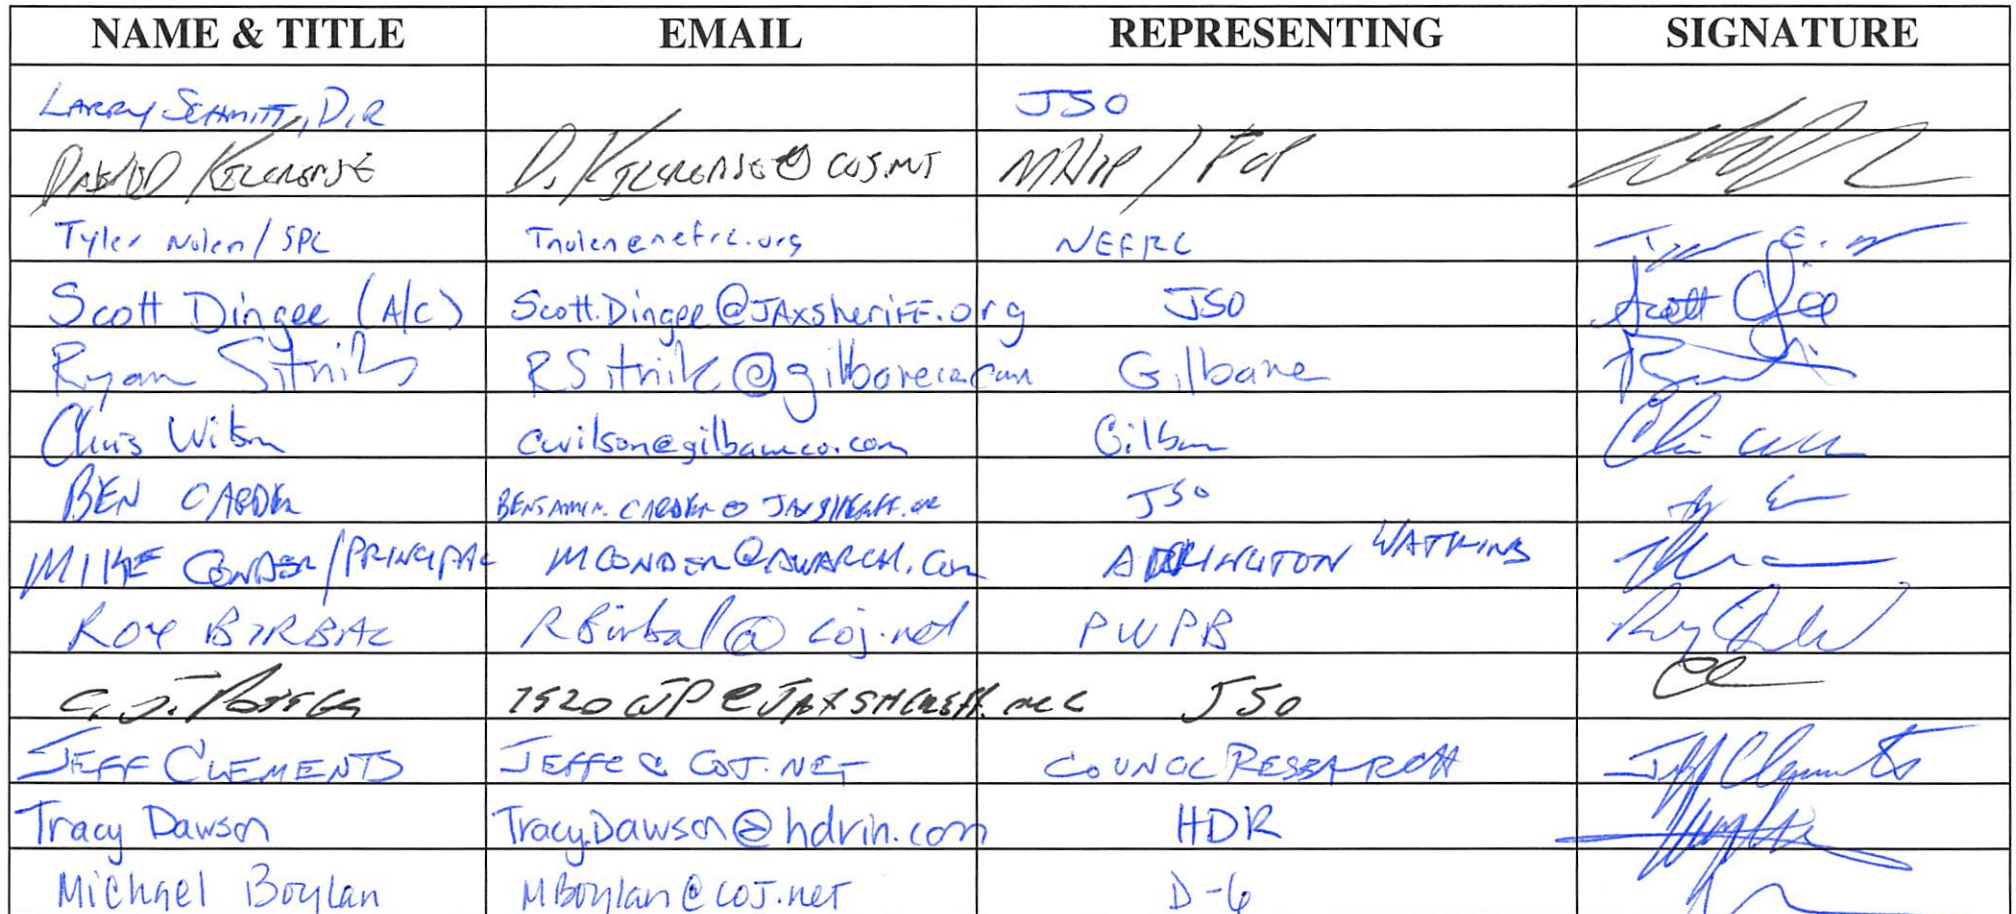 NAME & TITLE EMAIL REPRESENTING SIGNATURE
LARRY SCHMITT, DIR JSO
DAVID KILCREASE D.KILCREASE@COJ.NET
Tyler Nolen / SPL Tnolen@nefrc.org NEFRC
Scott Dingee (A/C) Scott.Dingee@JAXsheriff.org JSO
Ryan Sitnik RSitnik@gilbaneco.com Gilbane
Chris Wilson cwilson@gilbaneco.com
BEN CARDER BENJAMIN.CARDER@JAXSHERIFF.OR JSO
MIKE CONDER/PRINCIPAL MCONDER@AWARCH.COM WATKINS
ROY BIRBAL RBirbal@coj.net PWPB
C.J. JSO
JEFF CLEMENTS JEFFC@COJ.NET COUNCIL RESEARCH Jeff Clements
Tracy Dawson Tracy.Dawson@hdrin.com HDR
Michael Boylan MBoylan@COJ.net D-6